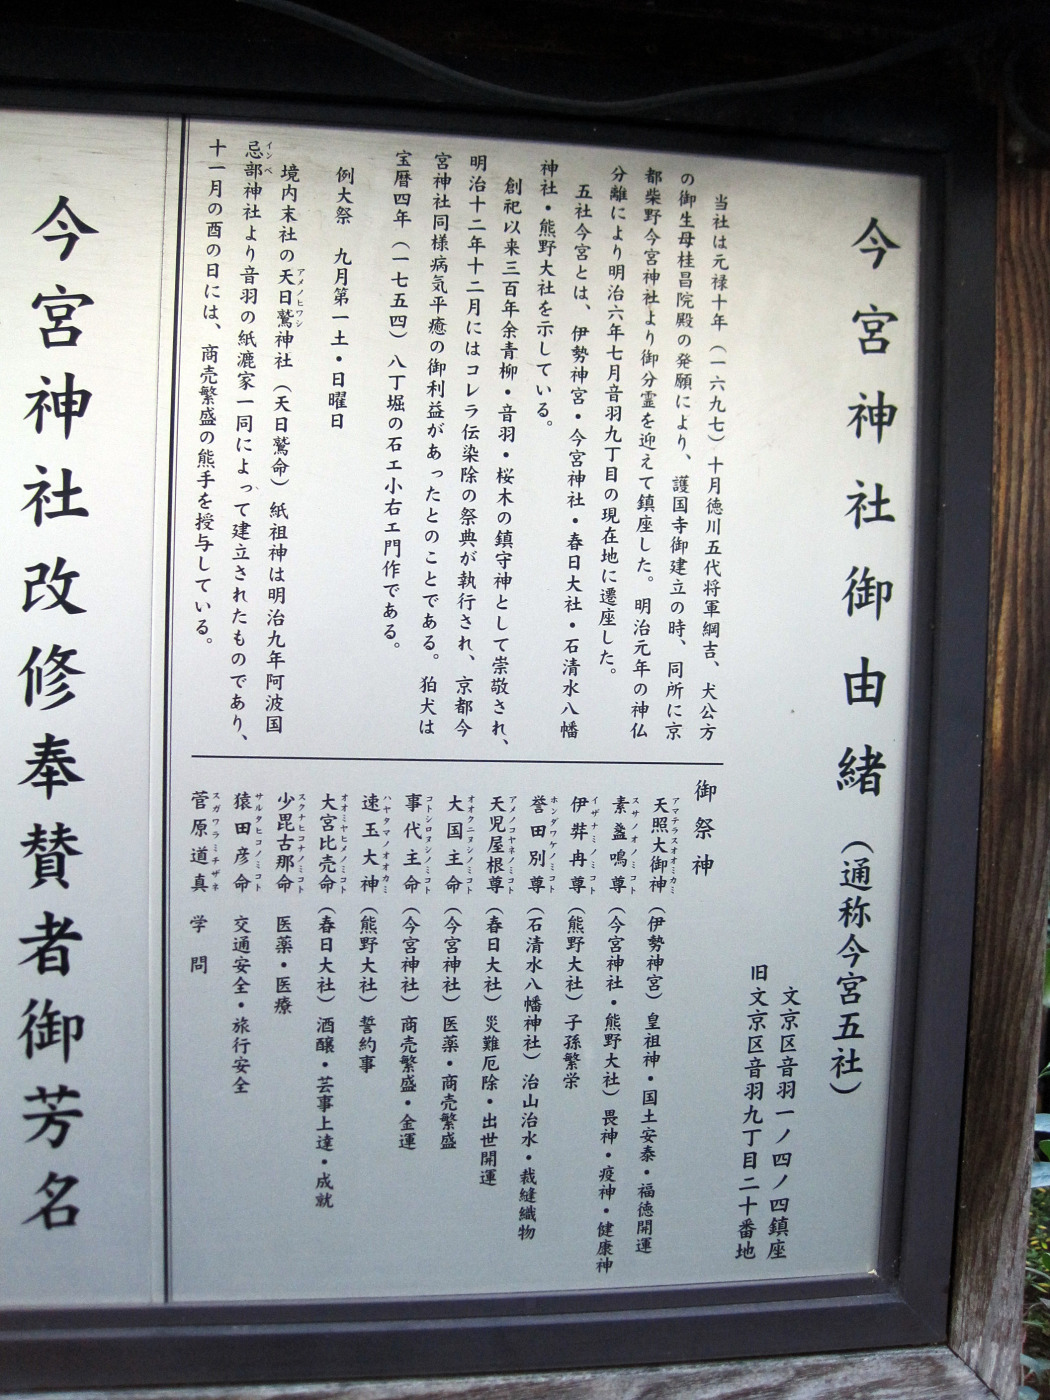 今宮神社御由緒 (通称今宮五社)
文京区音羽一ノ四ノ四鎮座
旧 文京区音羽九丁目二十番地
当社は元禄十年(一六九七)十月徳川五代将軍綱吉、犬公方
の御生母桂昌院殿の発願により、護国寺御建立の時、同所に京
都柴野今宮神社より御分霊を迎えて鎮座した。明治元年の神仏
分離により明治六年七月音羽九丁目の現在地に遷座した。
五社今宮とは、伊勢神宮・今宮神社・春日大社・石清水八幡
神社・熊野大社を示している。
創祀以来三百年余青柳・音羽・桜木の鎮守神として崇敬され、
明治十二年十二月にはコレラ伝染除の祭典が執行され、京都今
宮神社同様病気平癒の御利益があったとのことである。狛犬は
宝暦四年(一七五四)八丁堀の石エ小右エ門作である。
例大祭 九月第一土・日曜日
境内末社の天日鷲神社(天日鷲命)紙祖神は明治九年阿波国
アメノヒワシ
忌部神社より音羽の紙漉家一同によって建立されたものであり、
インベ
十一月の酉の日には、商売繁盛の熊手を授与している。
御祭神
天照大御神(伊勢神宮)皇祖神・国土安泰・福徳開運
アマテラスオオミカミ
素盞鳴尊(今宮神社・熊野大社)畏神・疫神・健康神
スサノオノミコト
伊弉冉尊(熊野大社)子孫繁栄
イザナミノミコト
誉田別尊(石清水八幡神社)治山治水・裁縫織物
ホンダワケノミコト
天児屋根尊(春日大社)災難厄除・出世開運
アメノコヤネノミコト
大国主命(今宮神社)医薬・商売繁盛
オオクニヌシノミコト
事代主命(今宮神社)商売繁盛・金運
コトシロヌシノミコト
速玉大神(熊野大社)誓約事
ハヤタマノオオカミ
大宮比売命(春日大社)酒醸・芸事上達・成就
オオミヤヒメノミコト
少毘古那命 医薬・医療
スクナヒコナノミコト
猿田彦命 交通安全・旅行安全
サルタヒコノミコト
菅原道真 学問
スガワラミチザネ
今宮神社改修奉賛者御芳名